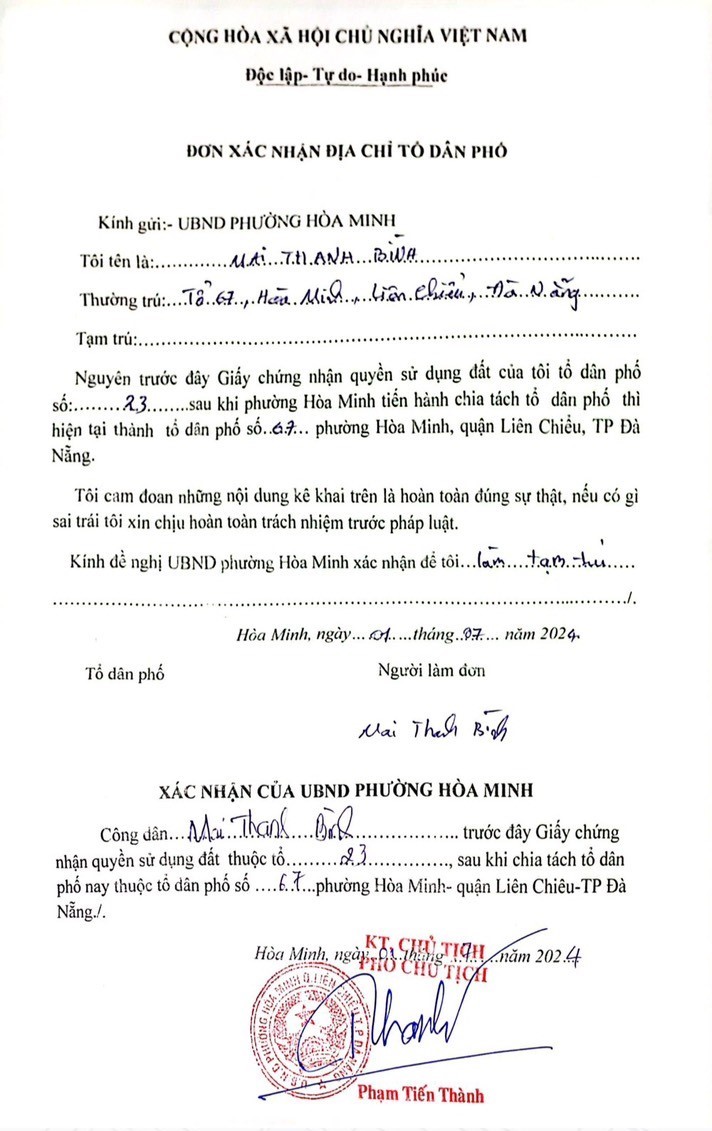 CỘNG HÒA XÃ HỘI CHỦ NGHĨA VIỆT NAM
Độc lập- Tự do- Hạnh phúc
ĐƠN XÁC NHẬN ĐỊA CHỈ TỔ DÂN PHỐ
Kính gửi:- UBND PHƯỜNG HÒA MINH
Tôi tên là:............MAI...THANH...BÌNH..............................
Thường trú:....Tổ 67.., Hòa..Minh...,Liên.Chiểu.,..Đà..Nẵng..........
Tạm trú:..............................................................................
Nguyên trước đây Giấy chứng nhận quyền sử dụng đất của tôi tổ dân phố
số:........23........sau khi phường Hòa Minh tiến hành chia tách tổ dân phố thì
hiện tại thành tổ dân phố số..67... phường Hòa Minh, quận Liên Chiểu, TP Đà
Nẵng.
Tôi cam đoan những nội dung kê khai trên là hoàn toàn đúng sự thật, nếu có gì
sai trái tôi xin chịu hoàn toàn trách nhiệm trước pháp luật.
Kính đề nghị UBND phường Hòa Minh xác nhận để tôi...làm....tạm..trú.....
................................................................................../.
Hòa Minh, ngày...01....tháng..07.... năm 2024.
Tổ dân phố Người làm đơn
Mai Thanh Bình
XÁC NHẬN CỦA UBND PHƯỜNG HÒA MINH
Công dân...Mai..Thanh....Bình................. trước đây Giấy chứng
nhận quyền sử dụng đất thuộc tổ.........23............., sau khi chia tách tổ dân
phố nay thuộc tổ dân phố số ....67...phường Hòa Minh- quận Liên Chiêu-TP Đà
Nẵng./.
Hòa Minh, ngày..01..tháng...7....năm 2024
KT. CHỦ TỊCH
PHÓ CHỦ TỊCH
U.B.N.D. PHƯỜNG HÒA MINH Q.LIÊN CHIỂU T.P ĐÀ NẴNG
Thanh
Phạm Tiến Thành